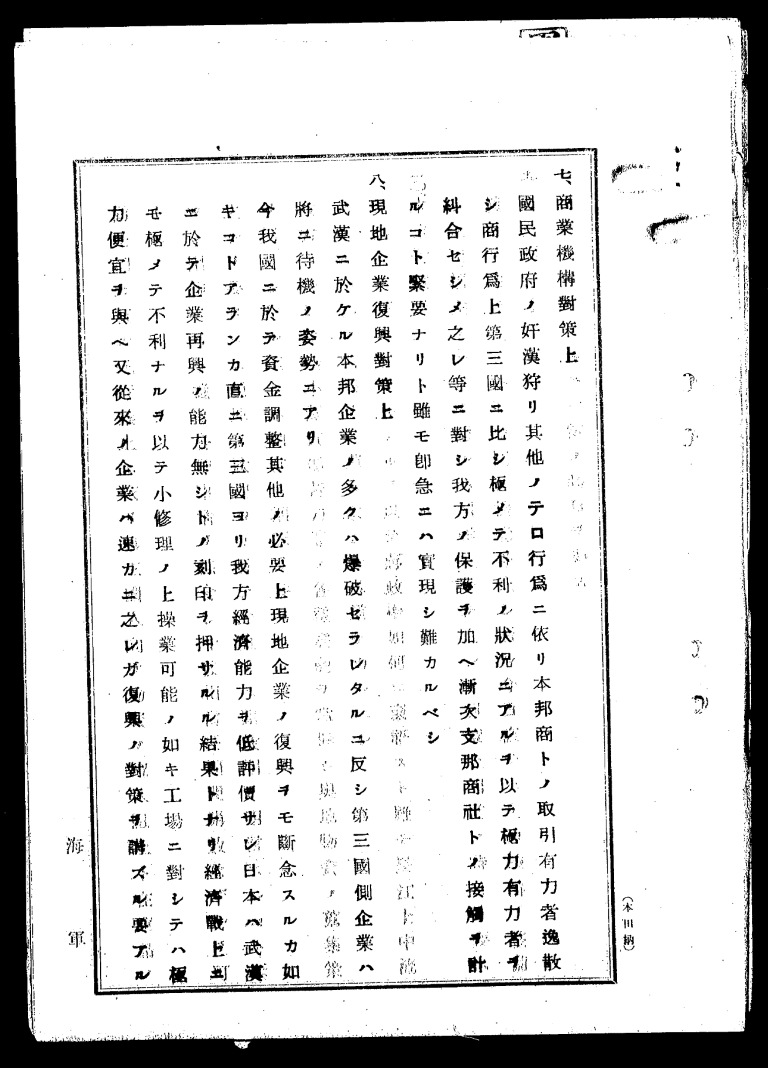 七、商業機構對策上
國民政府ノ奸漢狩リ其他ノテロ行爲ニ依リ本邦商トノ取引有力者逸散
シ商行爲上第三國ニ比シ極メテ不利ノ狀況ニアルヲ以テ極力有力者ヲ
糾合セシメ之レ等ニ對シ我方ノ保護ヲ加ヘ漸次支那商社トノ接觸ヲ計
ルコト緊要ナリト雖モ卽急ニハ實現シ難カルベシ
八、現地企業復興對策上
武漢ニ於ケル本邦企業ノ多クハ爆破セラレタルニ反シ第三國側企業ハ
將ニ待機ノ姿勢ニアリ
今我國ニ於テ資金調整其他ノ必要上現地企業ノ復興ヲモ斷念スルカ如
キコトアランカ直ニ第三國ヨリ我方經濟能力ヲ低評價サレ日本ハ武漢
ニ於テ企業再興ノ能力無シトノ刻印ヲ押サルル結果トナリ經濟戰上ニ
モ極メテ不利ナルヲ以テ小修理ノ上操業可能ノ如キ工場ニ對シテハ極
力便宜ヲ與ヘ又從來ノ企業ハ速カニ之レガ復興ノ對策ヲ講ズル要アル
海軍
(本田納)